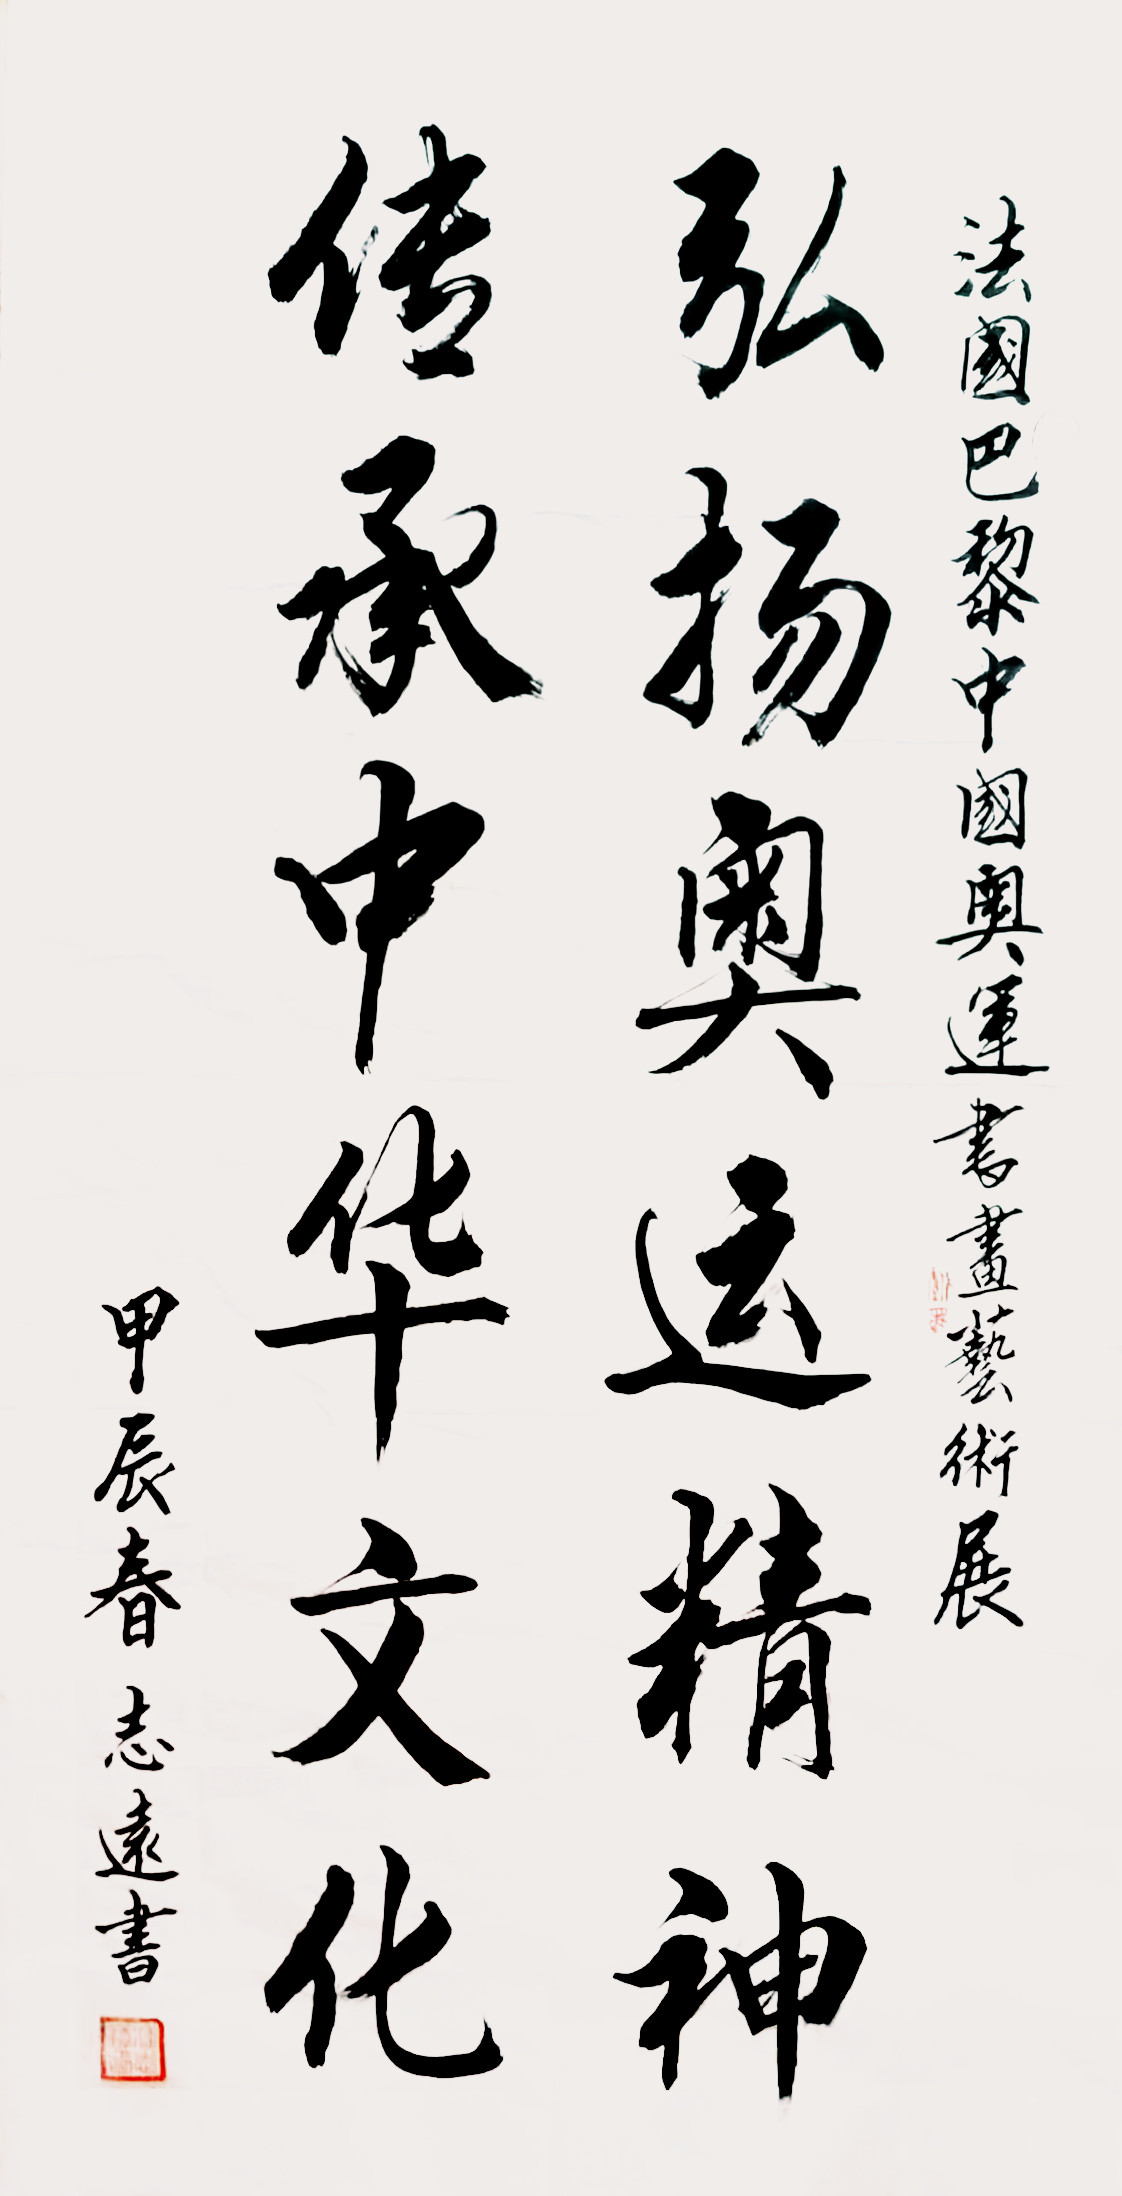 法國巴黎中國奧運书畫藝術展
弘扬奥运精神
传承中华文化
甲辰春志遠書